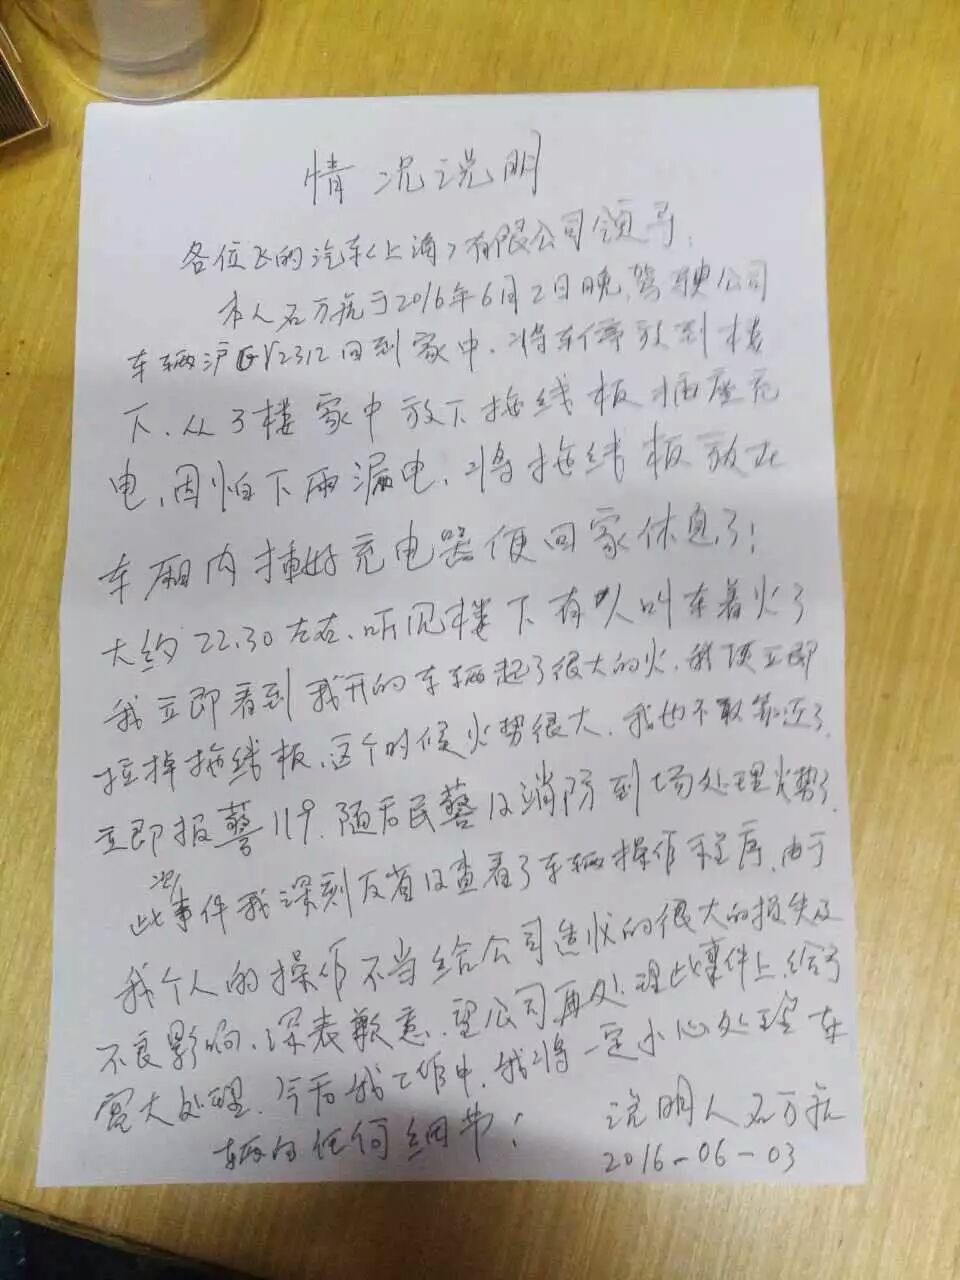 情况说明
各位飞的汽车(上海)有限公司领导:
本人石万航于2016年6月2日晚,驾驶公司
车辆沪GV2312回到家中,将车停放到楼
下,从3楼家中放下拖线板插座充
电,因怕下雨漏电,将拖线板放在
车厢内插好充电器便回家休息了;
大约22.30左右,听见楼下有人叫车着火了
我立即看到我开的车辆起了很大的火,我便立即
拉掉拖线板,这个时候火势很大,我也不敢靠近了,
立即报警119,随后民警及消防到场处理火势了,
次
此事件我深刻反省及查看了车辆操作程序,由于
我个人的操作不当给公司造成的很大的损失及
不良影响,深表歉意,望公司再处理此事件上给予
宽大处理,今后我工作中,我将一定小心处理车
辆的任何细节!
说明人石万航
2016-06-03